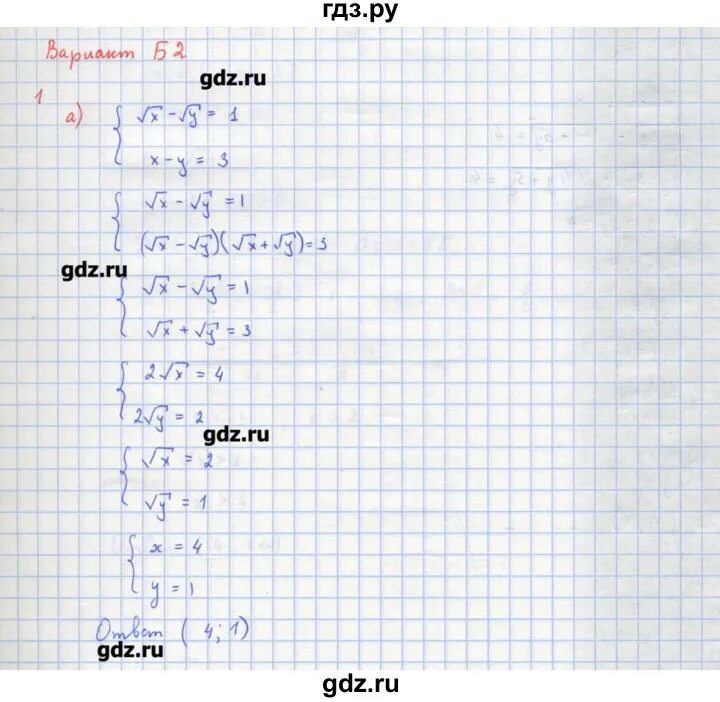 гдз.ру
Вариант Б2
gdz.ru
1
а) { √x - √y = 1
x - y = 3
{ √x - √y = 1
(√x - √y)(√x + √y) = 3
gdz.ru
{ √x - √y = 1
√x + √y = 3
{ 2√x = 4
2√y = 2
gdz.ru
{ √x = 2
√y = 1
{ x = 4
y = 1
Ответ ( 4; 1)
gdz.ru
gdz.ru